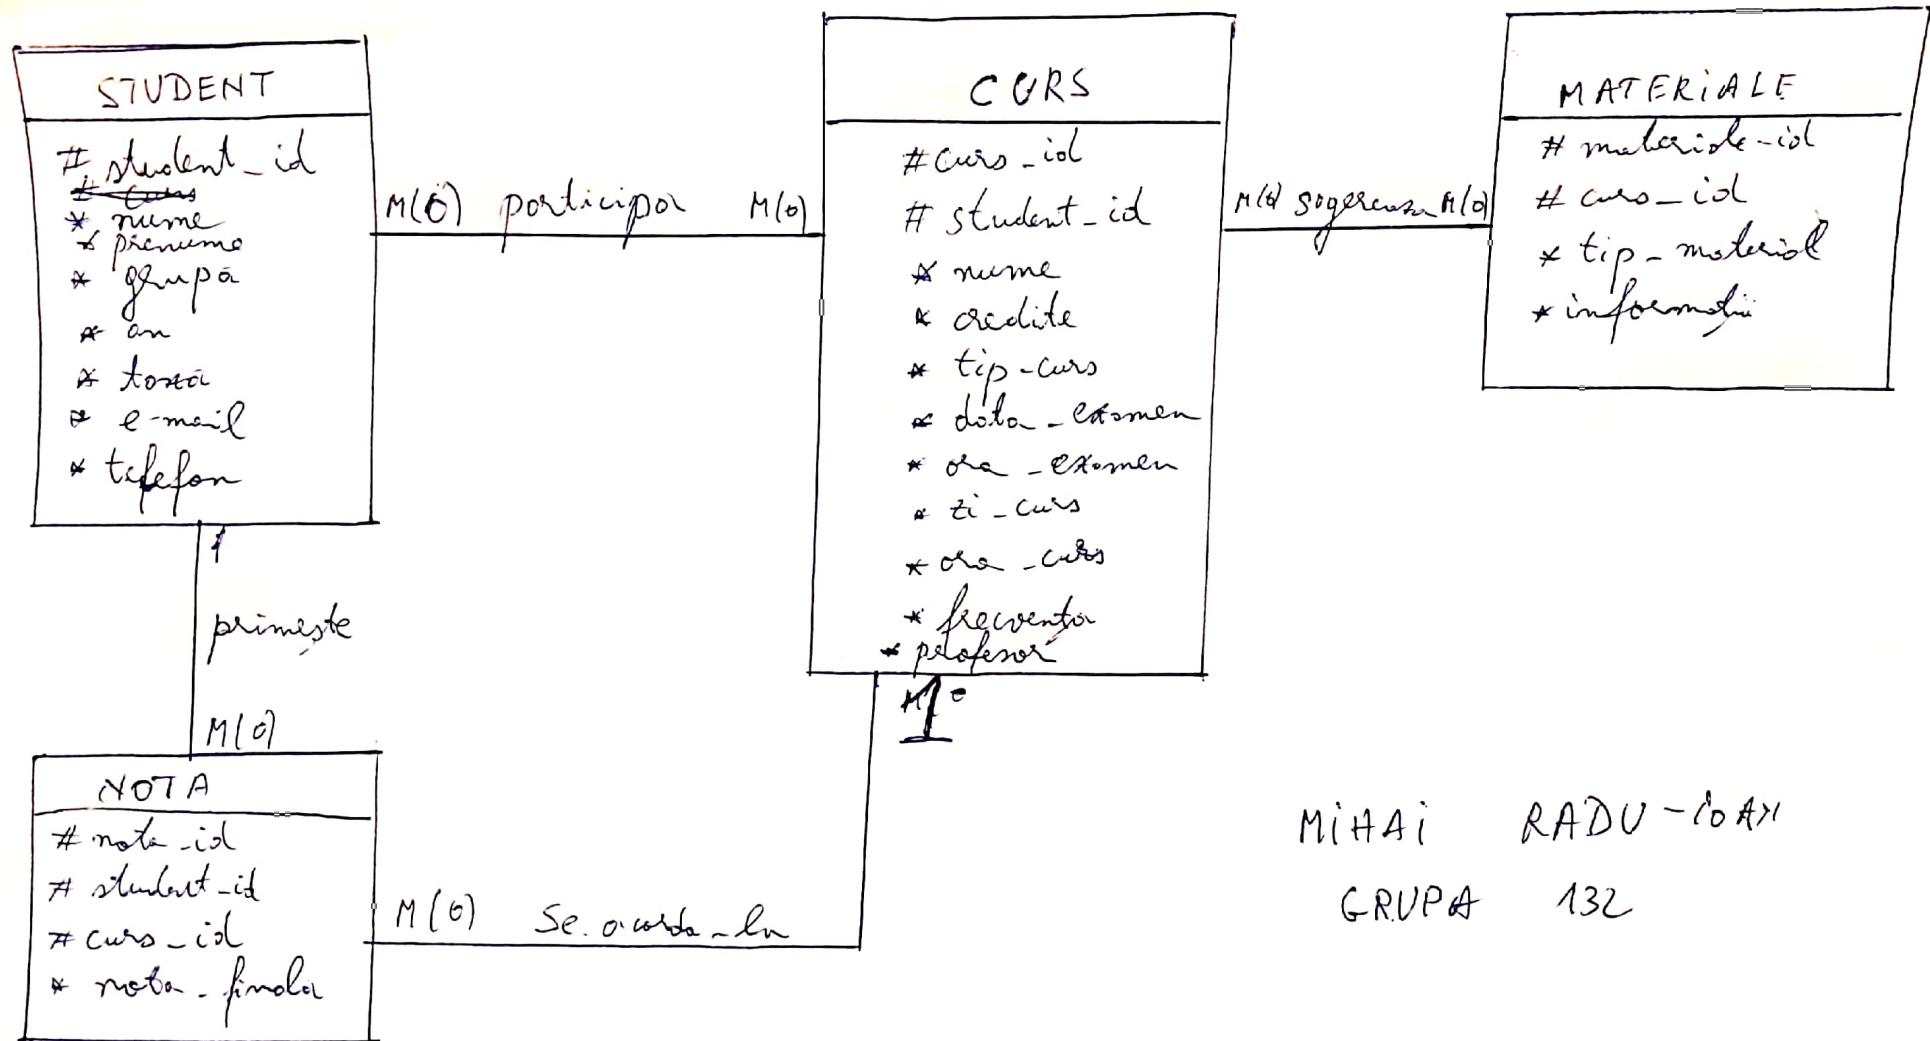 STUDENT
# student_id
* nume
* prenume
* grupă
* an
* taxă
* e-mail
* telefon
M(0) participa M(0)
CURS
# curs_id
# student_id
* nume
* credite
* tip-curs
* data_examen
* ora_examen
* zi_curs
* ora_curs
* frecventa
* profesor
1
M(0) sugereaza M(0)
MATERIALE
# materiale-id
# curs_id
* tip_material
* informatii
1
primește
M(0)
NOTA
# nota_id
# student_id
# curs_id
* nota_finala
M(0) Se acorda_la
MIHAI RADU-IOAN
GRUPA 132